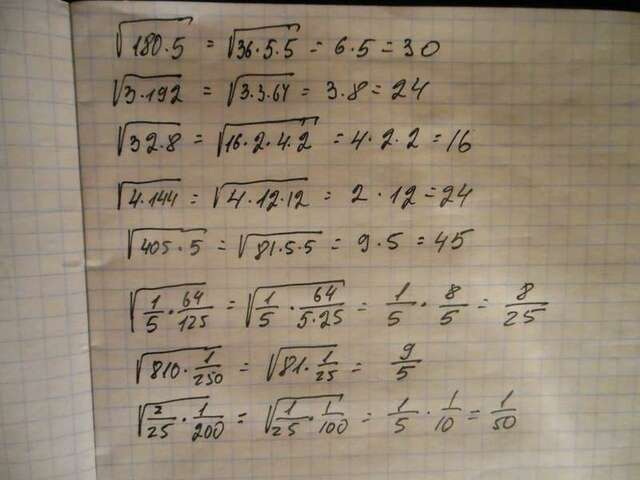 √180·5 = √36·5·5 = 6·5 = 30
√3·192 = √3·3·64 = 3·8 = 24
√32·8 = √16·2·4·2 = 4·2·2 = 16
√4·144 = √4·12·12 = 2·12 = 24
√405·5 = √81·5·5 = 9·5 = 45
√1/5·64/125 = √1/5·64/5·25 = 1/5·8/5 = 8/25
√810·1/250 = √81·1/25 = 9/5
√2/25·1/200 = √1/25·1/100 = 1/5·1/10 = 1/50